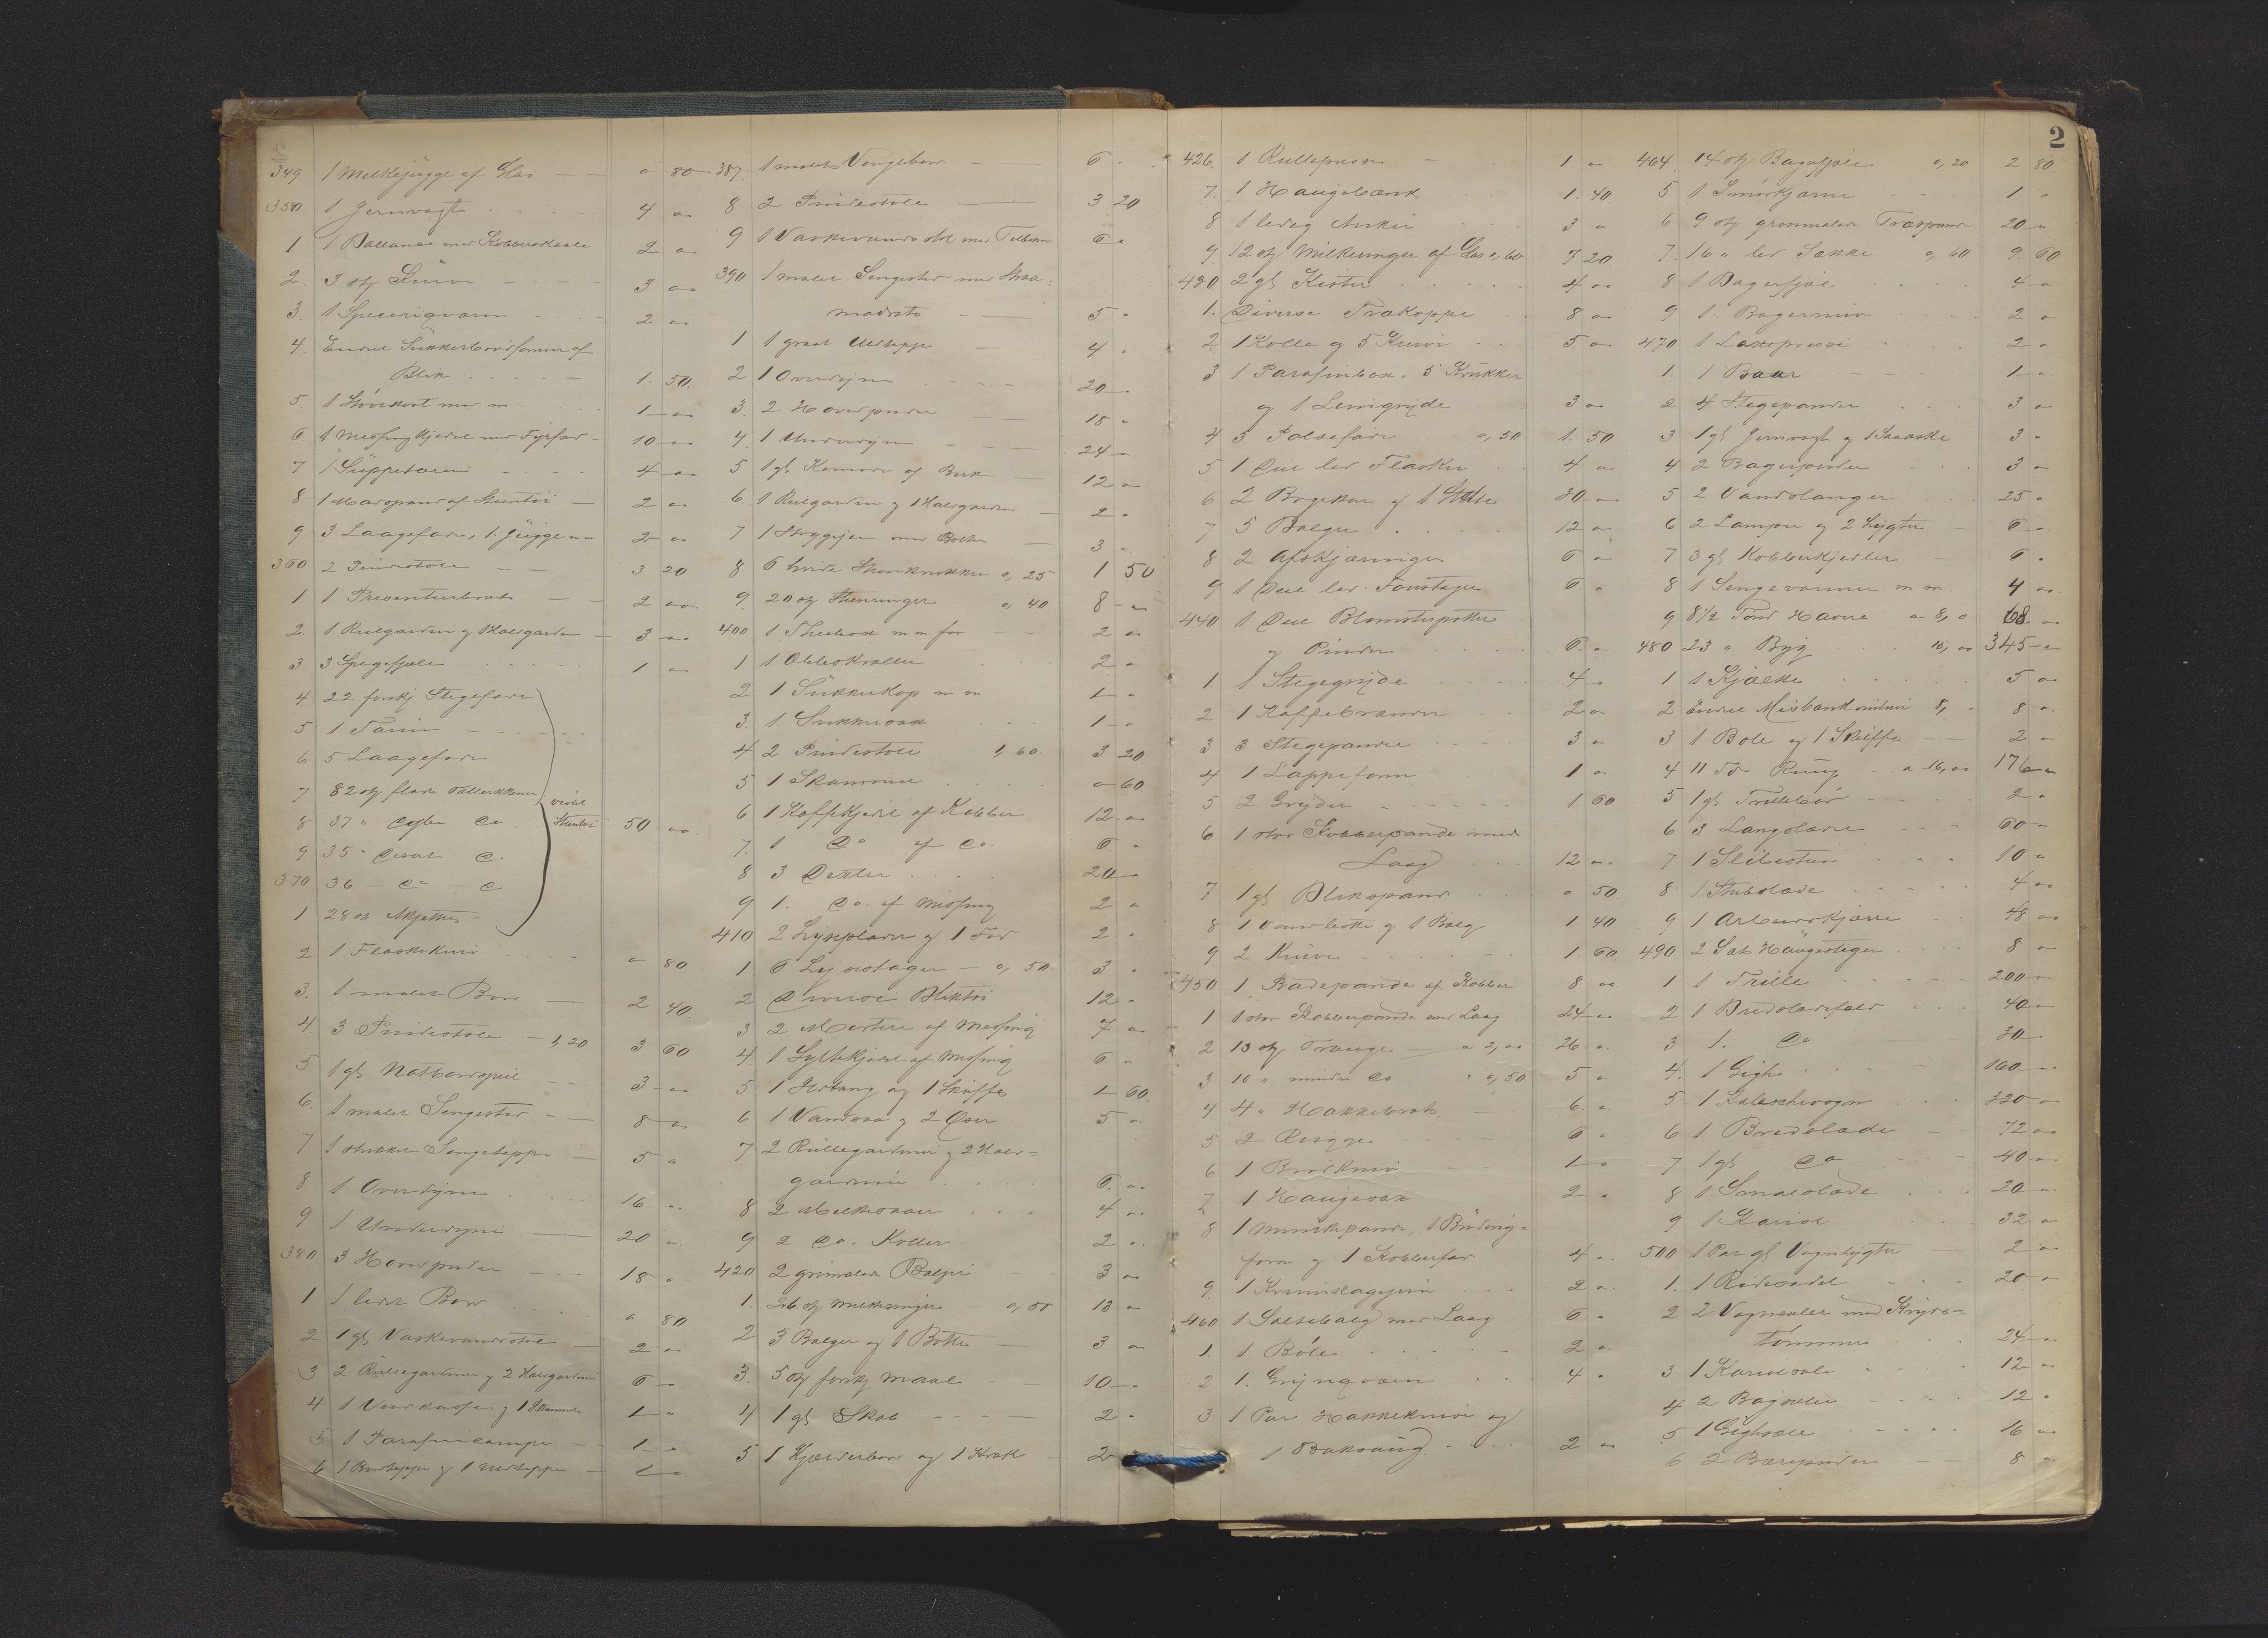 2
349 1 Melkejugge af Glas — — " 80
350 1 Jernvagt 4 "
1 1 Ballance med Kobberskaale 2 "
2. 3 stk 3 "
3. 1 2 "
4. Endel Sukkerbrødformer af
Blik 1. 50.
5 1 Støvekost med m. 1 "
6 1 Messingkjedel med Fyrfad 10 "
7 1 Suppetarin 4 "
8. 1 af Stentøi 2 "
9 3 Laagefade, 1. Jugge 2 "
360 2 Pindestole — — 3 20
1 1 Presenterbret 2 "
2. 1 Rulgardin og 1 Halvgardin — 3 "
3 3 Spegefjæle 1 "
4 22 forskj Stegefade
5 1 Tarin
6 5 Laagefade
7 82 stk flade Tallerkkener violet
8 37 " dybe Do Stentøi 50 "
9 35 " Desert D.
370 36 — Do — D.
1 28 stk
2 1 Flaskekurv " 80
3. 1 malet Bord — 2 40.
4 3 Pindestole — 1,20 3 60
5 1 gl. Natbordspeil 3 "
6. 1 malet Sengested 8 "
7 1 strikket Sengeteppe — 5 "
8 1 Overdyne 16 "
9 1 Underdyne — 20 "
380 3 Hovedpuder 18 "
1 1 lidet Bord " 80
2 1 gl Vaskevandsstol 2 "
3 2 Rullegardiner og 2 Halvgardiner 6 "
4 1 og 1 Skammel 1 "
5 1 Parafinlampe 1 "
6 1 Bordteppe og 1 Uldteppe 1 "
387. 1 malet Vengebord — 6 .
8 2 Pindestole — 3 20
9 1 Vaskevandsstol med Tilbehør 6 "
390 1 malet Sengested med Straa=
madrats — 5 "
1 1 graat Uldteppe — 4 "
2 1 Overdyne 20 "
3. 2 Hovedpuder 18 "
4. 1 Underdyne 24 "
5 1 gl Komode af Birk 12 "
6. 1 Rulgardin og 1 Halvgardin 2 "
7 1 Strygejern med Bolter — 3 "
8 6 hvide Stenkrukker a, 25 1 50
9. 20 stk Stenringer a, 40 8 "
400 1 Thebox m m for 2 "
1 1 2 "
2 1 Sukkerkop m m 1 "
3. 1 Sukkersax 1 "
4 2 Pindestole 1,60. 3 20
5 1 Skammel " 60
6 1 Kaffekjedel af Kobber 12 "
7. 1 Do af Do 6 "
8 3 20 "
9 1. Do. af Messing 2 "
410 2 Lyseplader og 1 Fad 2 "
1 6 Lysestager — a, 50 3 "
2 Diverse Bliktøi 12 "
3 2 Mortere af Messing 7 "
4. 1 Syltekjedel af Messing 6 "
5 1 Ildtang og 1 Skuffe 1 60
6 1 Vandsaa og 2 Øser 5 "
7 2 Rullegardiner og 2 Halv=
gardiner 6. "
8 2 Melkesaaer 4 "
9 2 Do. Koller 2 "
420 2 grønmalede Balger 3 "
1. 26 stk Melkeringer a, 50 13 "
2 3 Balger og 1 Bøtte 3 "
3. 5 stk forskj Maal 10 "
4 1 gl Skab 2 "
5 1 Kjælderbord og 1 Krak 2 "
426. 1 Rullepresse 1 "
7. 1 Haugebænk 1. 40
8 1 ledig Anker 3 "
9. 12 stk Melkeringer af Glas a, 60 7 20
430 2 gl Kister 4 "
1. Diverse Trækoppe 8 "
2 1 Kolle og 5 Kurve 5 "
3 1 Parafinbox, 5 Krukker
og 1 Leirgryde 3 "
4 3 Pølsefade a, 50 1. 50
5 1 Del led Flasker 4 "
6 2 Brygekar og 1 30 "
7 5 Balger 12 "
8 2 Afskjæringer 6 "
9 1 Del led. 6 "
440 1 Del Blomsterpotter
og Pinder 6. "
1. 1 Stegegryde 4 "
2 1 Kaffebrænder 2 "
3 3 Stegepander 3 "
4 1 Lappeform 1 "
5 2 Gryder 1 60
6 1 stor Kobberpande med
Laag 12 "
7 1 gl Blikspand " 50
8 1 Vandbøtte og 1 Balg 1 40
9 2 Kurve 1 60
450 1 Badepande af Kobber 8 "
1 1 stor Kobberpande med Laag 24 "
2 13 stk Trauge — a 2,00 26 "
3 10 " mindre Do " a,50 5 "
4 4 " Hakkebret 6. "
5 2 Rugge 6 "
6 1 Brødkniv 1 "
7 1 Haugesax 2 "
8 1 Munkepande, 1 Buding=
form og 1 Kobberfad 4 "
9. 1 Krumkagejern 2 "
460 1 Saltebalg med Laag 6 "
1. 1 Bøle 2 "
2 1. Grynqværn 4 "
3 1 Par Hakkeknive og
1 Baksaug 2 "
464 14 stk Bagefjæle a, 20 2 80
5 1 Smørkjærne 1 "
6 9 stk grønmalede Træspand 20 "
7. 16 " led Sække a, 60 9. 60
8 1 Bagerfjæl 4 "
9 1. 2 "
470 1 Laxepresse 2 "
1. 1 Baar 1 "
2 4 Stegepander 3 "
3 1 gl Jernvagt og 3 "
4 2 Bagerpinder 3 "
5 2 Vandslanger 25 "
6 2 Lamper og 2 Lygter 6 "
7 3 gl Kobberkjedler 6 "
8 1 Sengevarmer m m. 4 "
9 8 1/2 Tønd Havre a 8,0 68 "
480 23 " Byg 15,00 345 "
1 1 Kjælke 5 "
2 8, " 8 "
3 1 Bøle og 1 Skuffe 2 "
4 11 Td Rug a 16,00 176 "
5 1 gl Trillebør 2 "
6 3 Langslæder 60 "
7 1 Slibesten 10 "
8. 1 Stubslæde 4 "
9 1 Arbeidskjærre 48 "
490 2 Sæt Haugestiger 8 "
1 1 Trille 200 "
2 1 40 "
3 1. Do 30 "
4. 1 Gigh 160 "
5. 1 Kaleschevogn 320 "
6 1 Bredslæde 72 "
7 1 gl Do 40 "
8 1 Smalslæde 20 "
9 1 Kariol 32 "
500 1 Par gl Vognlygter 2 "
1. 1 Ridesadel 20 "
2 2 Vognseler med Kryds=
tømmer 24 "
3 1 Kariolsele 12 "
4 2 Bagseler 12 "
5. 1 Gighsele 16 "
6 2 Bærepuder 8 "